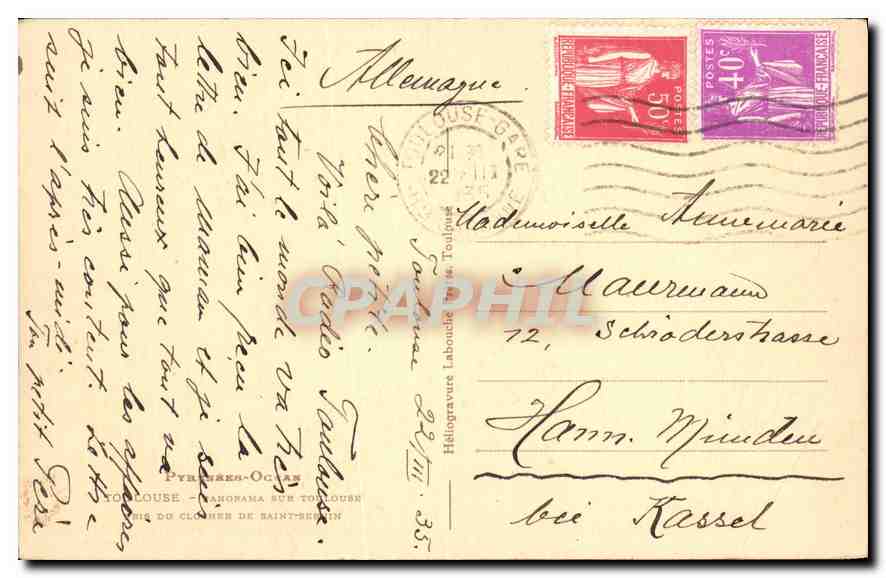 Allemagne
Toulouse 22/III. 35.
Chère petite.
Voilà Radio Toulouse.
Ici tout le monde va très
bien. J'ai bien reçu la
lettre de Maman et je suis
tout heureux que tout va
bien. Aussi pour les affaires
je suis très content. Lettre
suit l'après-midi.
Ton petit Péra
RÉPUBLIQUE-FRANÇAISE
POSTES
50c
POSTES
40c
RÉPUBLIQUE-FRANÇAISE
TOULOUSE-GARE
22 III
35
Mademoiselle Annemarie
Maurmann
12, Schröderstrasse
Hann. Münden
bei Kassel
Héliogravure Labouche Frères, Toulouse
PYRÉNÉES-OCÉAN
TOULOUSE - PANORAMA SUR TOULOUSE
PRIS DU CLOCHER DE SAINT-SERNIN
CPAPHIL